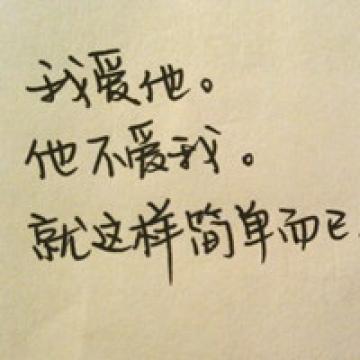 我爱他。
他不爱我。
就这样简单而已.